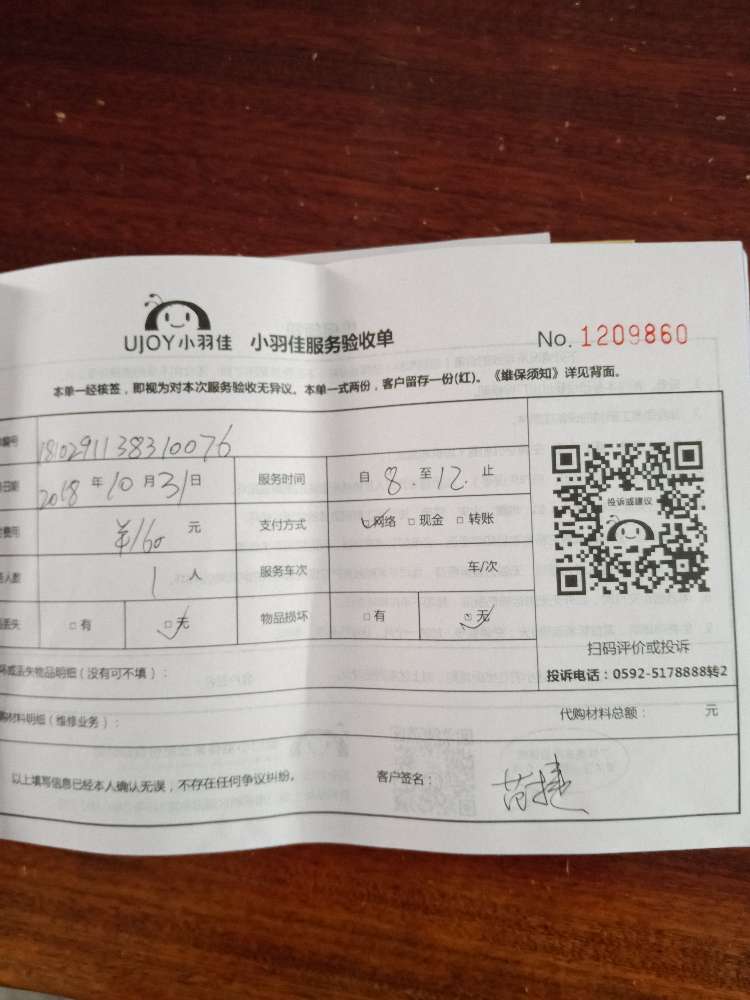 UJOY小羽佳 小羽佳服务验收单 No. 1209860
本单一经核签，即视为对本次服务验收无异议。本单一式两份，客户留存一份(红)。《维保须知》详见背面。
编号 1810291138310076
日期 2018 年 10 月 31 日 服务时间 自 8 至 12 止
费用 ¥160 元 支付方式 □网络 □现金 □转账
人数 1 人 服务车次 车/次
丢失 □有 □无 物品损坏 □有 □无
投诉或建议
扫码评价或投诉
投诉电话：0592-5178888转2
坏或丢失物品明细（没有可不填）：
购材料明细（维修业务）： 代购材料总额： 元
以上填写信息已经本人确认无误，不存在任何争议纠纷。 客户签名：